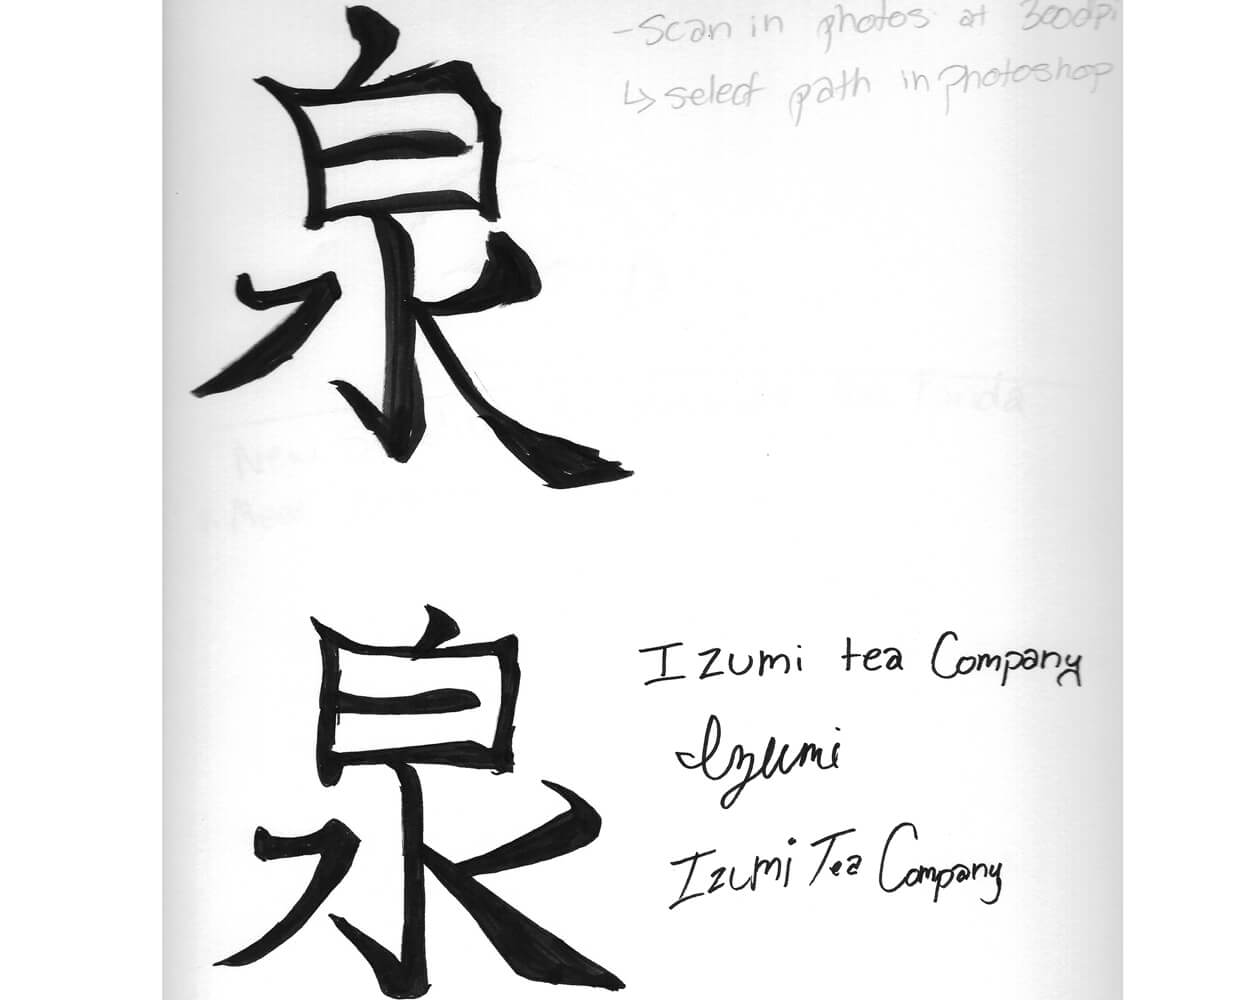 泉
-Scan in photos at 300dpi
↳ select path in photoshop
泉
Izumi tea Company
Izumi
Izumi Tea Company